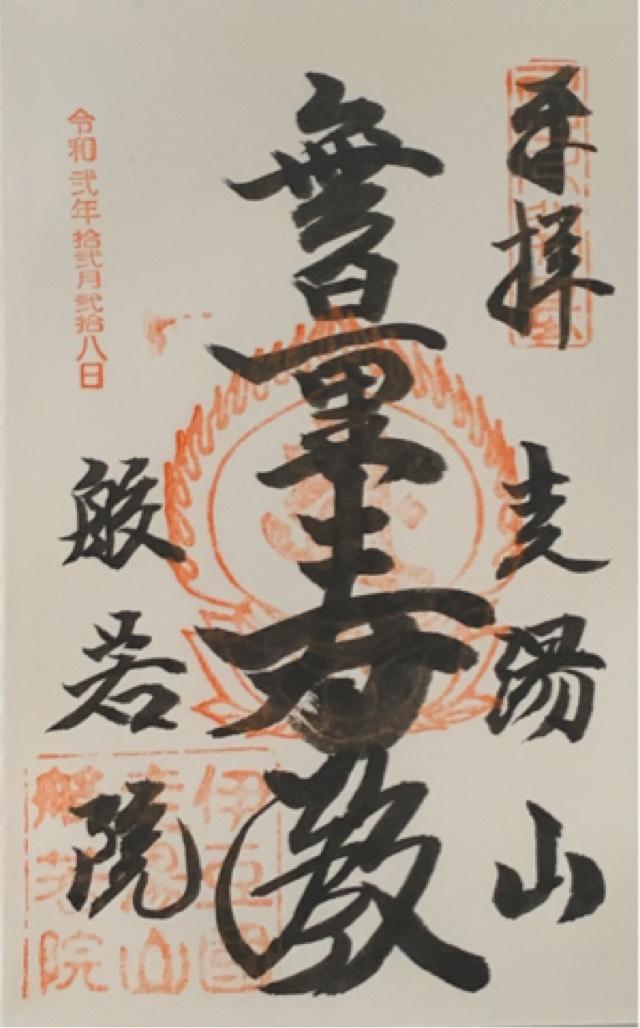 奉拝
走湯山
無量寿殿
般若院
令和弐年拾弐月弐拾八日
伊豆國
走湯山
般若院